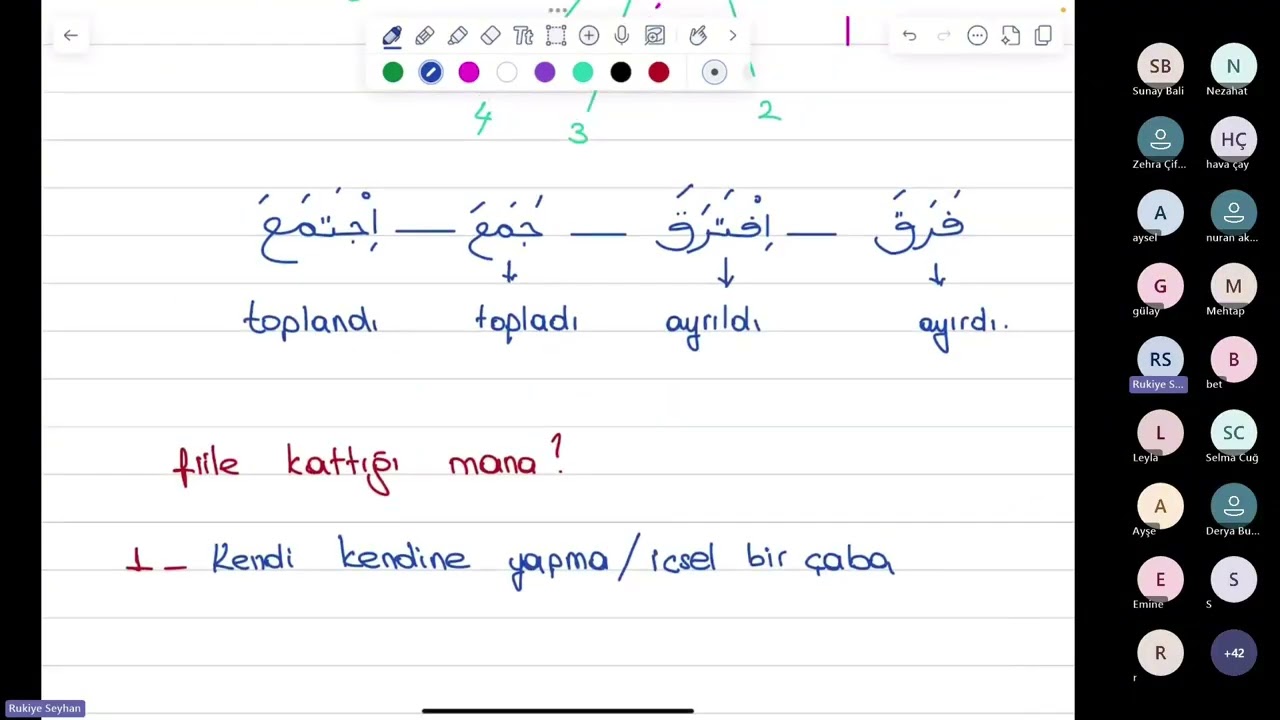 Tt
4 3 2
فَرَقَ — اِفْتَرَقَ — جَمَعَ — اِجْتَمَعَ
toplandı topladı ayrıldı ayırdı.
fiile kattığı mana?
1 - Kendi kendine yapma / icsel bir çaba
Rukiye Seyhan
SB N
Sunay Bali Nezahat
HÇ
Zehra Çif... hava çay
A
aysel nuran ak...
G M
gülay Mehtap
RS B
Rukiye S... bet
L SC
Leyla Selma Cuğ
A
Ayşe Derya Bu...
E S
Emine S
R +42
r